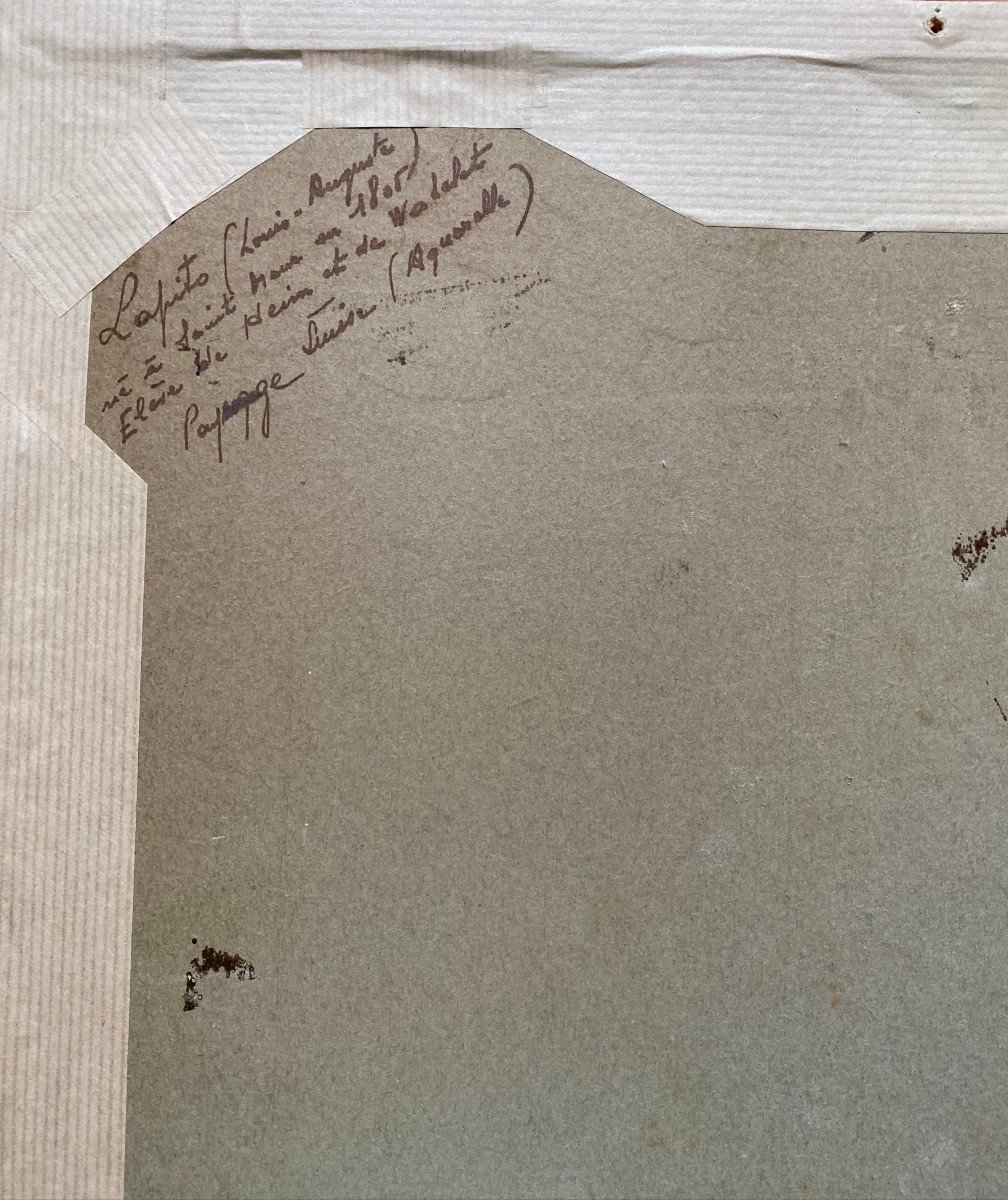 Lapito (Louis-Auguste)
né à Saint Maur en 1805
Elève de Heim et de Watelet
Paysage Suisse (Aquarelle)